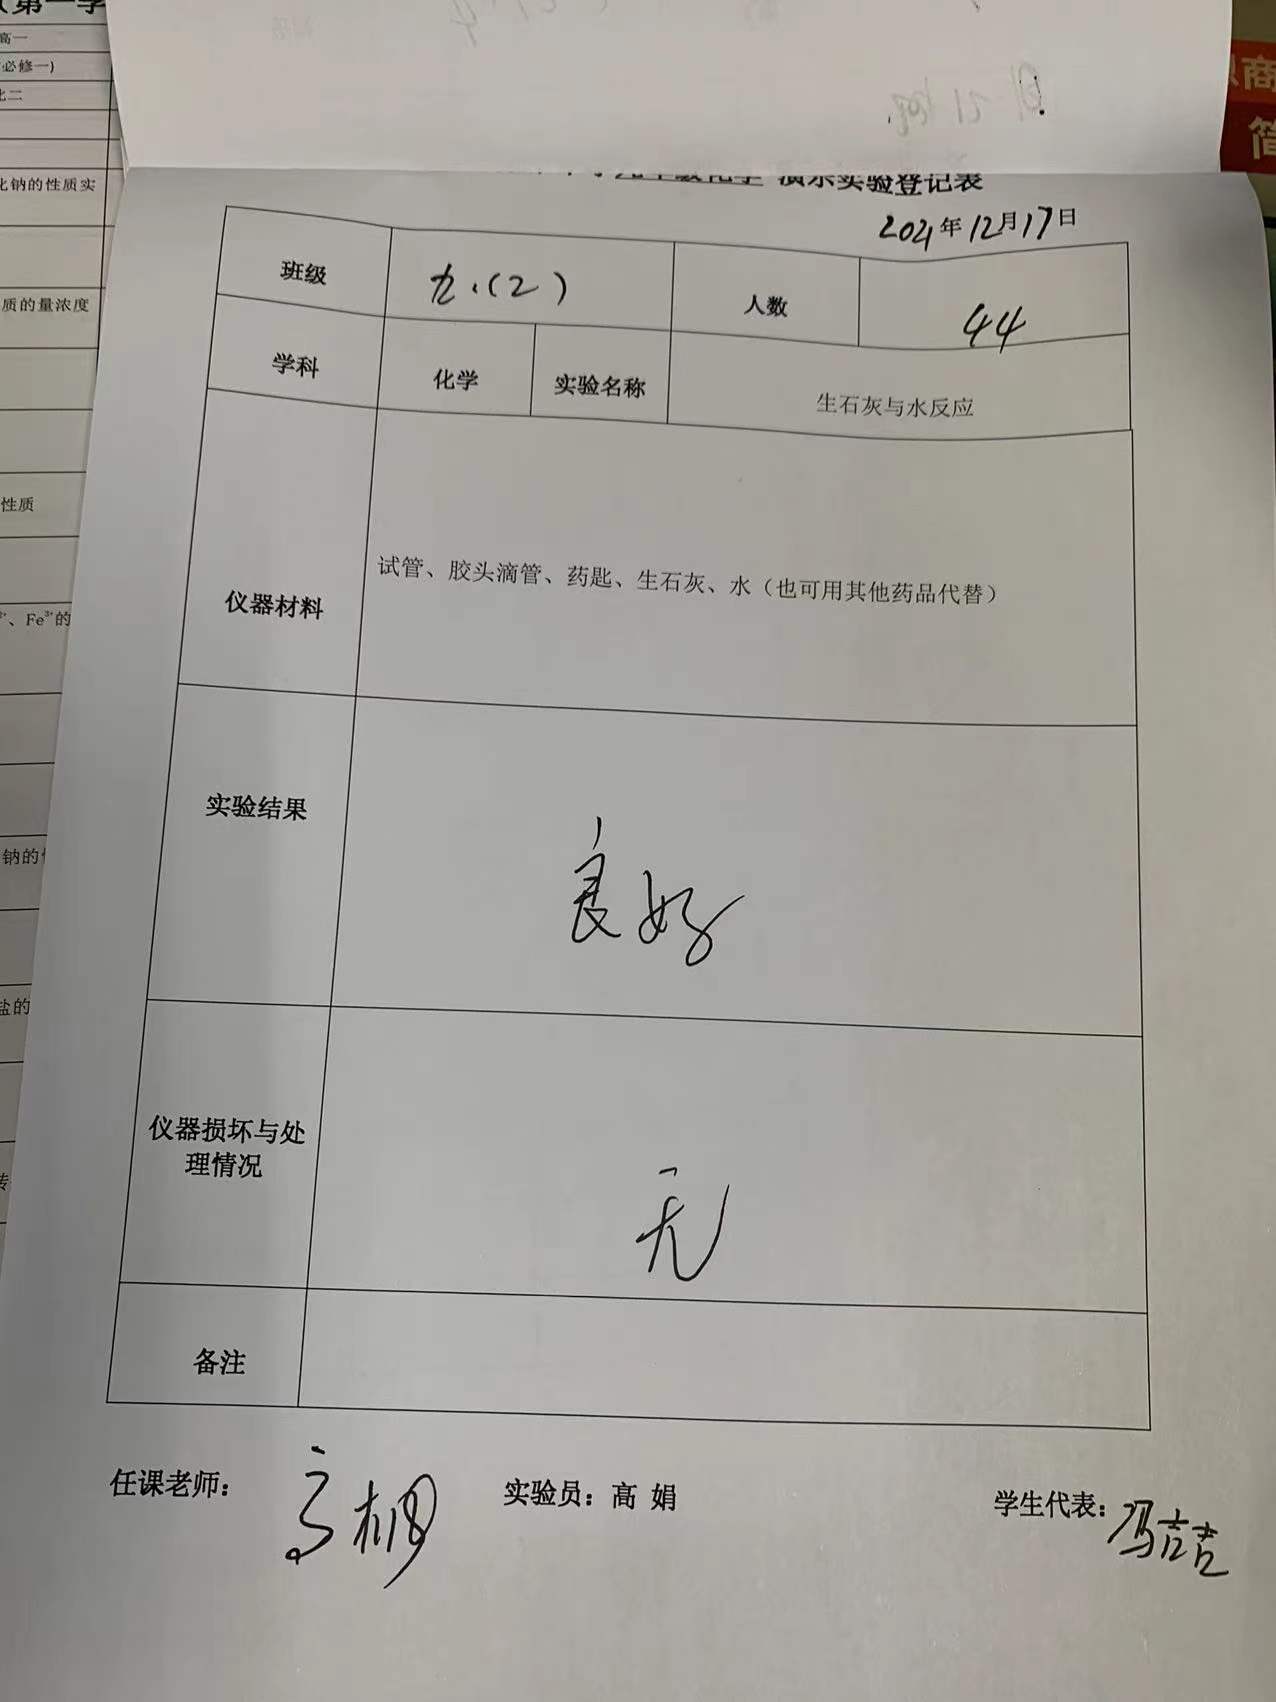 (第一学
高一
必修一)
化二
化钠的性质实
质的量浓度
性质
、Fe³⁺的
钠的性
盐的
思商
简
九年级化学 演示实验登记表
2021年12月17日
班级 九.(2) 人数 44
学科 化学 实验名称 生石灰与水反应
仪器材料 试管、胶头滴管、药匙、生石灰、水（也可用其他药品代替）
实验结果 良好
仪器损坏与处
理情况 无
备注
任课老师： 实验员：高 娟 学生代表：冯吉吉